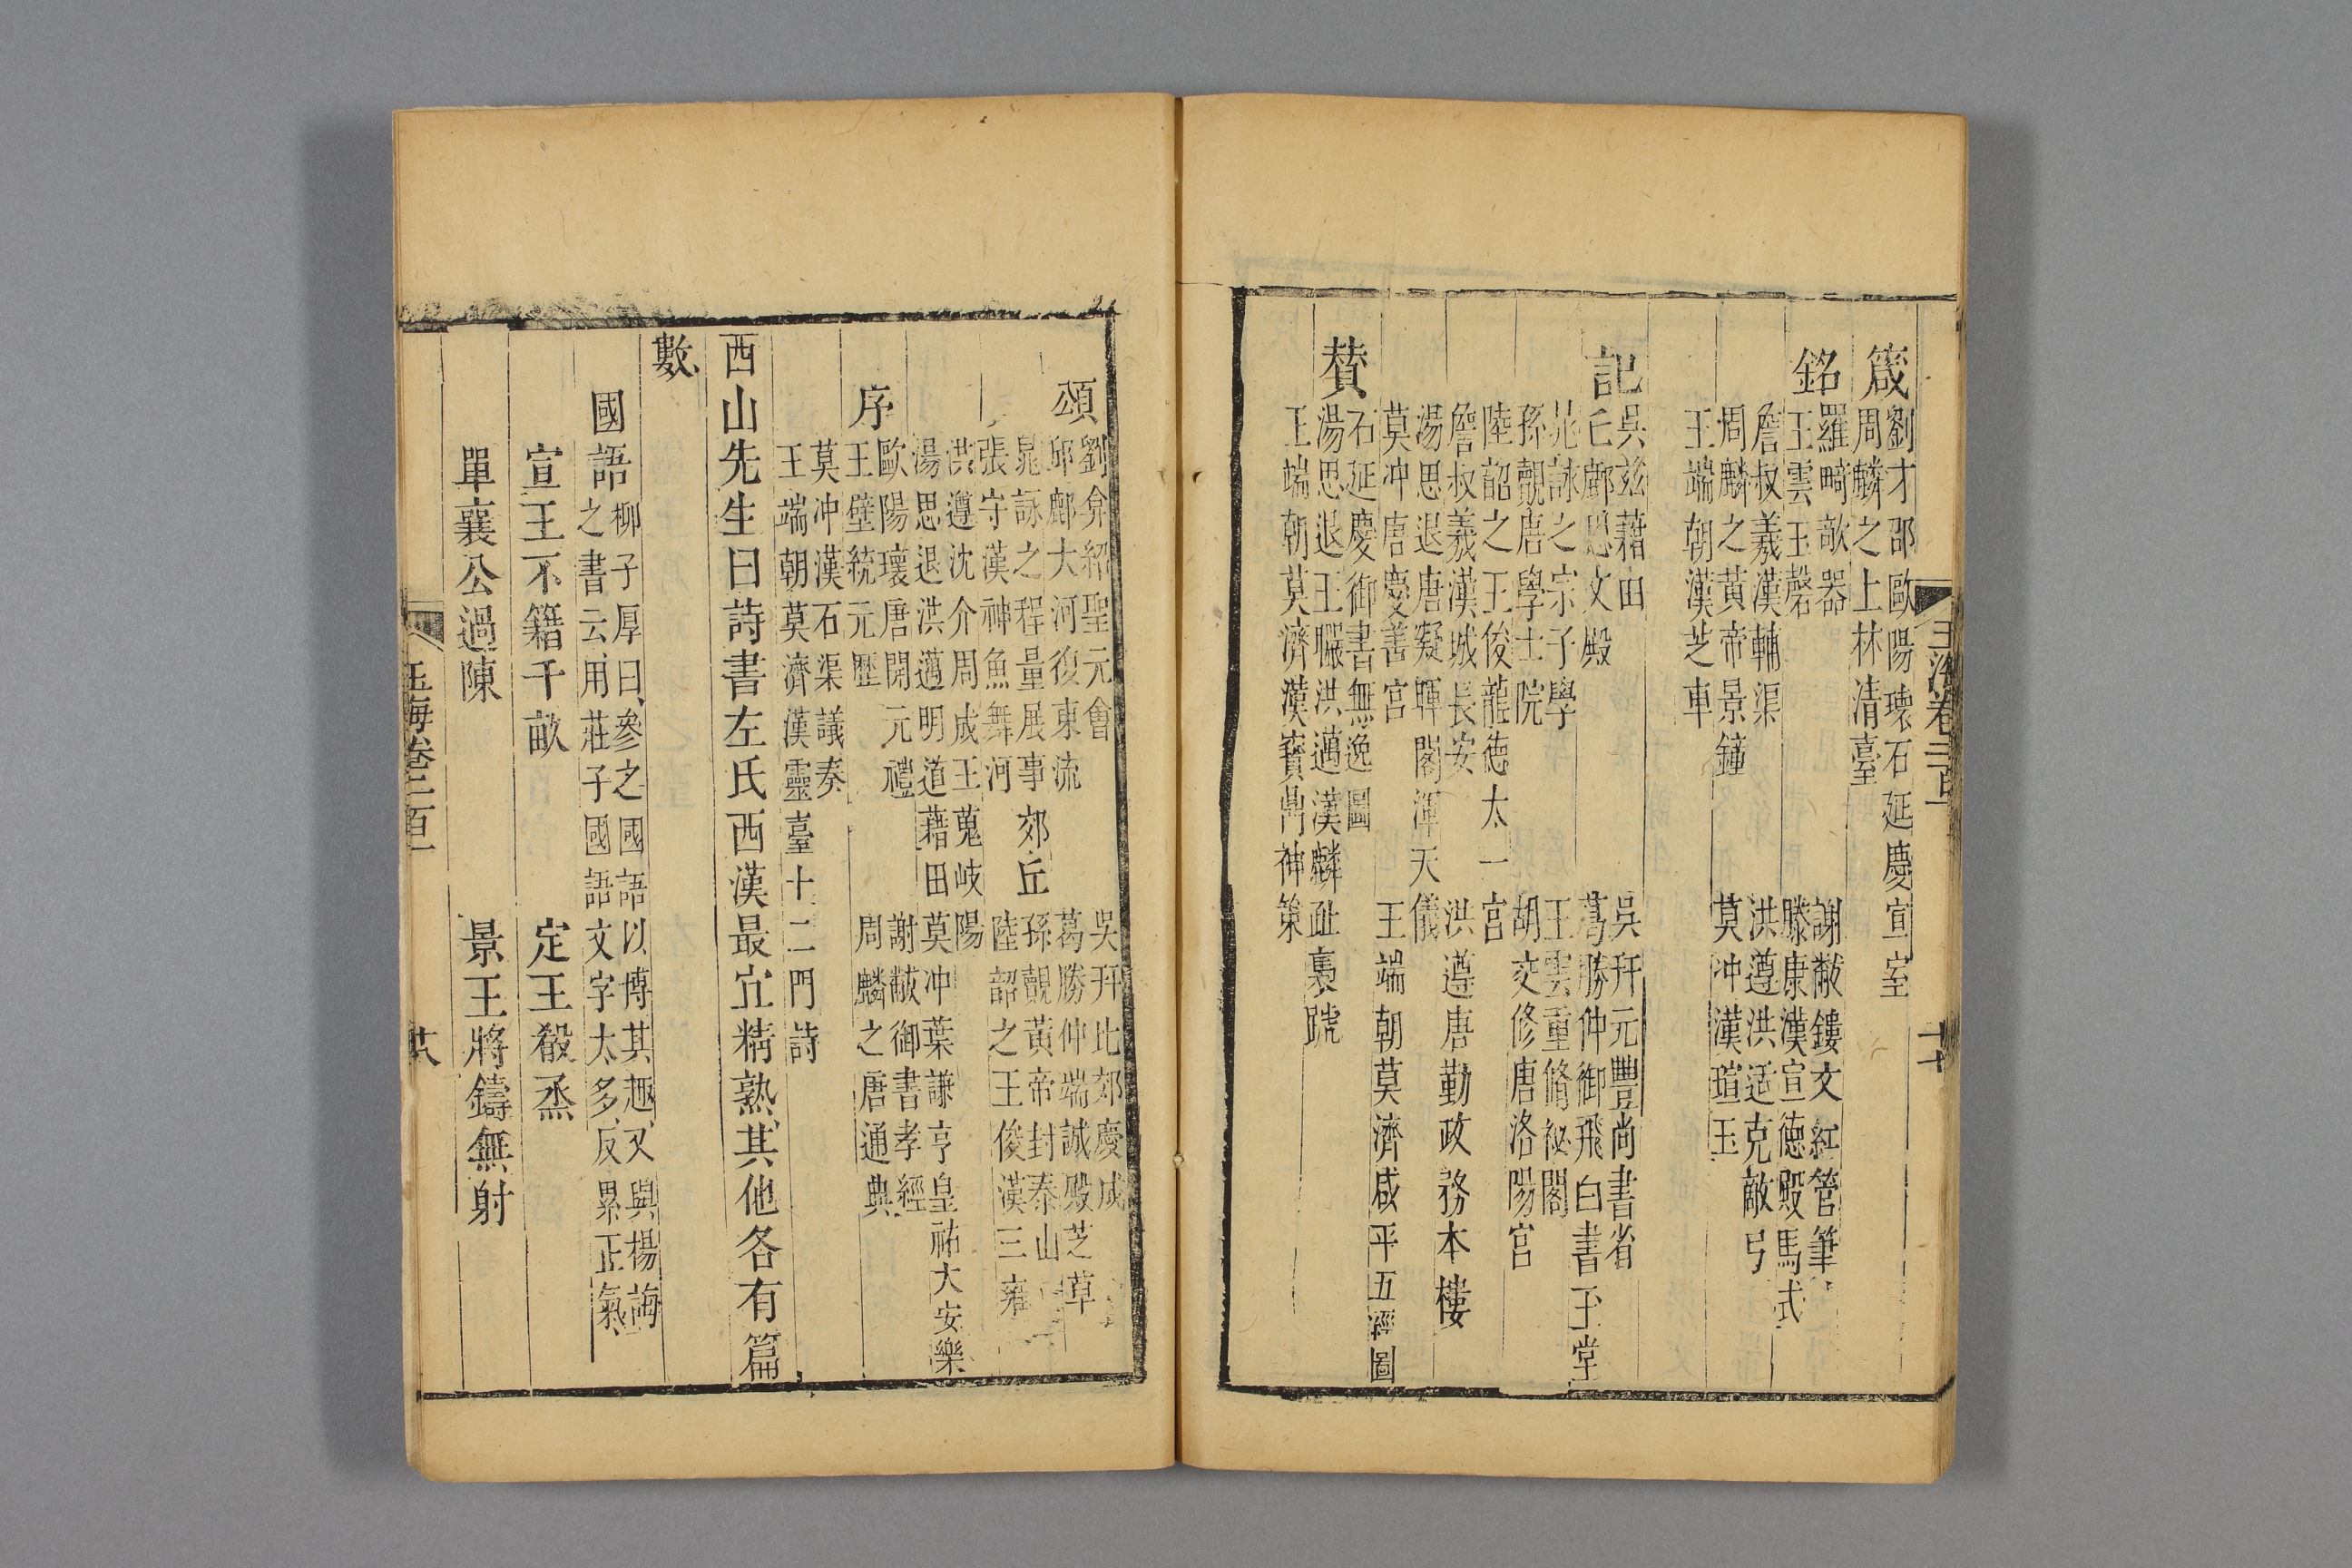 玉海卷二百一
十七
箴
劉才邵 歐陽瓌石延慶宣室
周麟之上林清臺
銘
羅畸敔器
謝黻鏤文紅管筆
王雲玉磬
滕康漢宣德殿馬式
詹叔羲漢輔渠
洪遵洪适克敵弓
周麟之黃帝景鐘
莫冲漢瑄玉
王端朝漢芝車
記
吳兹藉田
吳幵元豐尚書省
亡鄜思文殿
葛勝仲御飛白書玉堂
晁詠之宗子學
王雲重脩祕閣
孫覿唐學士院
胡交修唐洛陽宮
陸韶之王俊龍德太一宮
詹叔羲漢城長安
洪遵唐勤政務本樓
湯思退唐凝暉閣渾天儀
莫冲唐慶善宮
王端朝莫濟咸平五經圖
贊
石延慶御書無逸圖
湯思退王曮洪邁漢麟趾褭號
王端朝莫濟漢寶鼎神策
頌
劉弇紹聖元會
吳幵北郊慶成
邱鄜大河復東流
葛勝仲端誠殿芝草
晁詠之程量展事郊丘
孫覿黃帝封泰山
張守漢神魚舞河
陸韶之王俊漢三雍
洪遵沈介周成王蒐岐陽
湯思退洪邁明道藉田
莫冲葉謙亨皇祐大安樂
序
歐陽瓌唐開元禮
謝黻御書孝經
王壁統元歷
周麟之唐通典
莫冲漢石渠議奏
王端朝莫濟漢靈臺十二門詩
西山先生曰詩書左氏西漢最宜精熟其他各有篇
數
國語
柳子厚曰參之國語以博其趣又與楊誨
之書云用莊子國語文字太多反累正氣
宣王不籍千畝
定王殽烝
單襄公過陳
景王將鑄無射
玉海卷二百一
十八